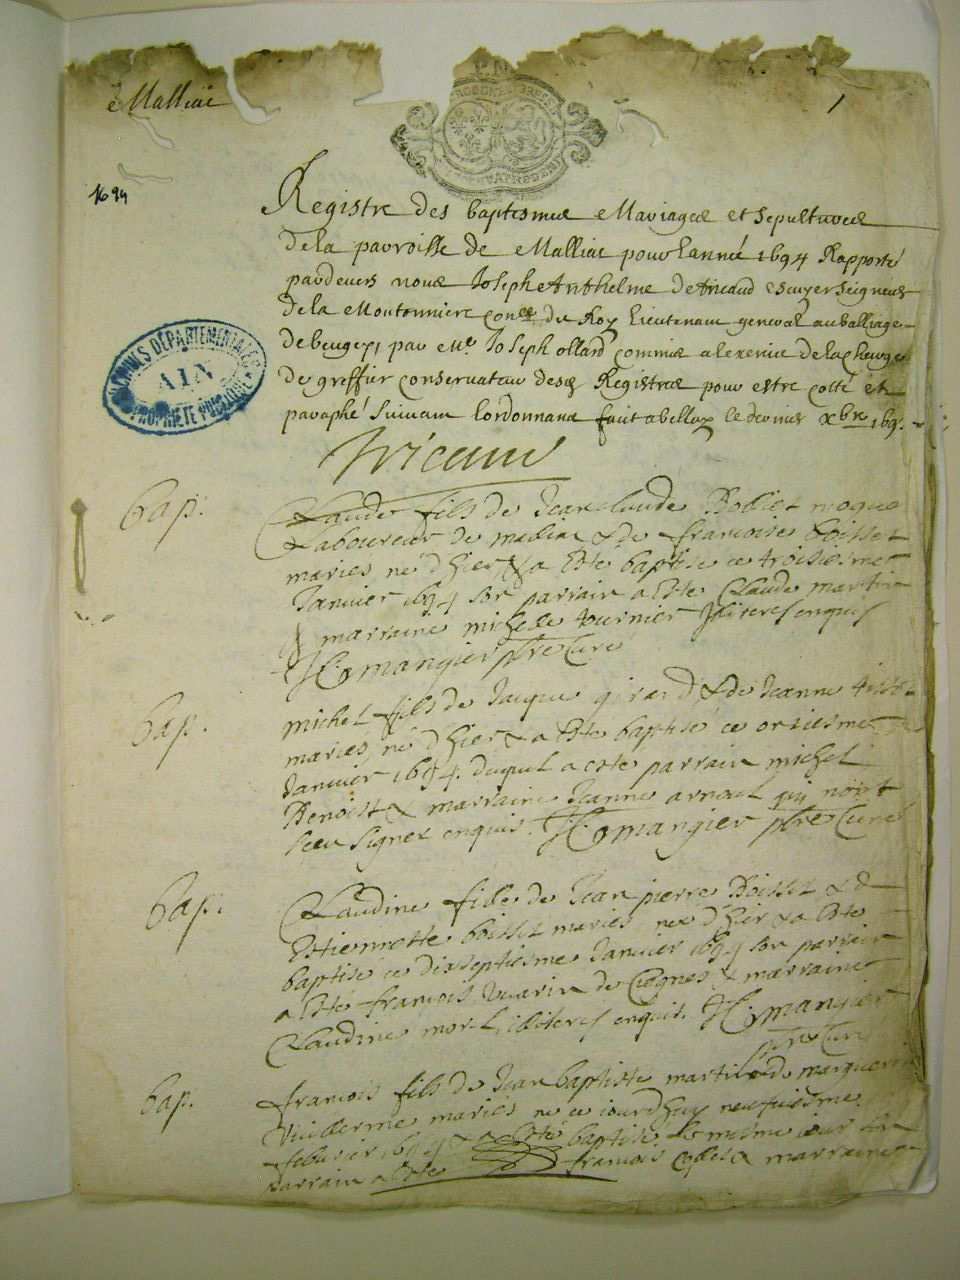 Malliac
1
1694
Registre des baptesmes Mariages et sepultures
de la parroisse de Malliac pour lannée 1694 Rapporté
pardevers nous Joseph Anthelme escuyer seigneur
de la Moutonniere con.er du Roy Lieutenant general au balliage
de beugey, par M.e Joseph ollard commis a lexercice de la charge
de greffier conservateur desd Registres pour estre cotté et
paraphé suivant lordonnance fait a belley le dernier Xbre 169
ARCHIVES DÉPARTEMENTALES
AIN
PROPRIÉTÉ PUBLIQUE
bap.
Claude fils de Jean claude
Laboureur de & de francoise boisset
maries né d'hier & a esté baptisé ce troisiesme
Janvier 1694 son parrain a esté Claude martin
& marraine michelle tournier illiteres enquis
mangier pbre Curé
bap.
michel fils de Jacque girard & de Jeanne
maries, né d'hier & a esté baptisé ce onziesme
Janvier 1694. duquel a esté parrain michel
Benoist & marraine Jeanne arnoul qui n'ont
sceu signer enquis. mangier pbre Curé
bap.
Claudine fille de Jean pierre Boisset & d
Estiennette boisset maries, née d'hier & a esté
baptisé ce dixseptiesme Janvier 1694 son parrain
a esté francois de & marraine
Claudine morel illiteres enquis. mangier
pbre Curé
bap.
francois fils de Jean baptiste & de marguerite
Vuillerme maries né ce iourdhuy neufuiesme
feburier 1694 & a esté baptisé le mesme iour son
parrain a esté francois & marraine